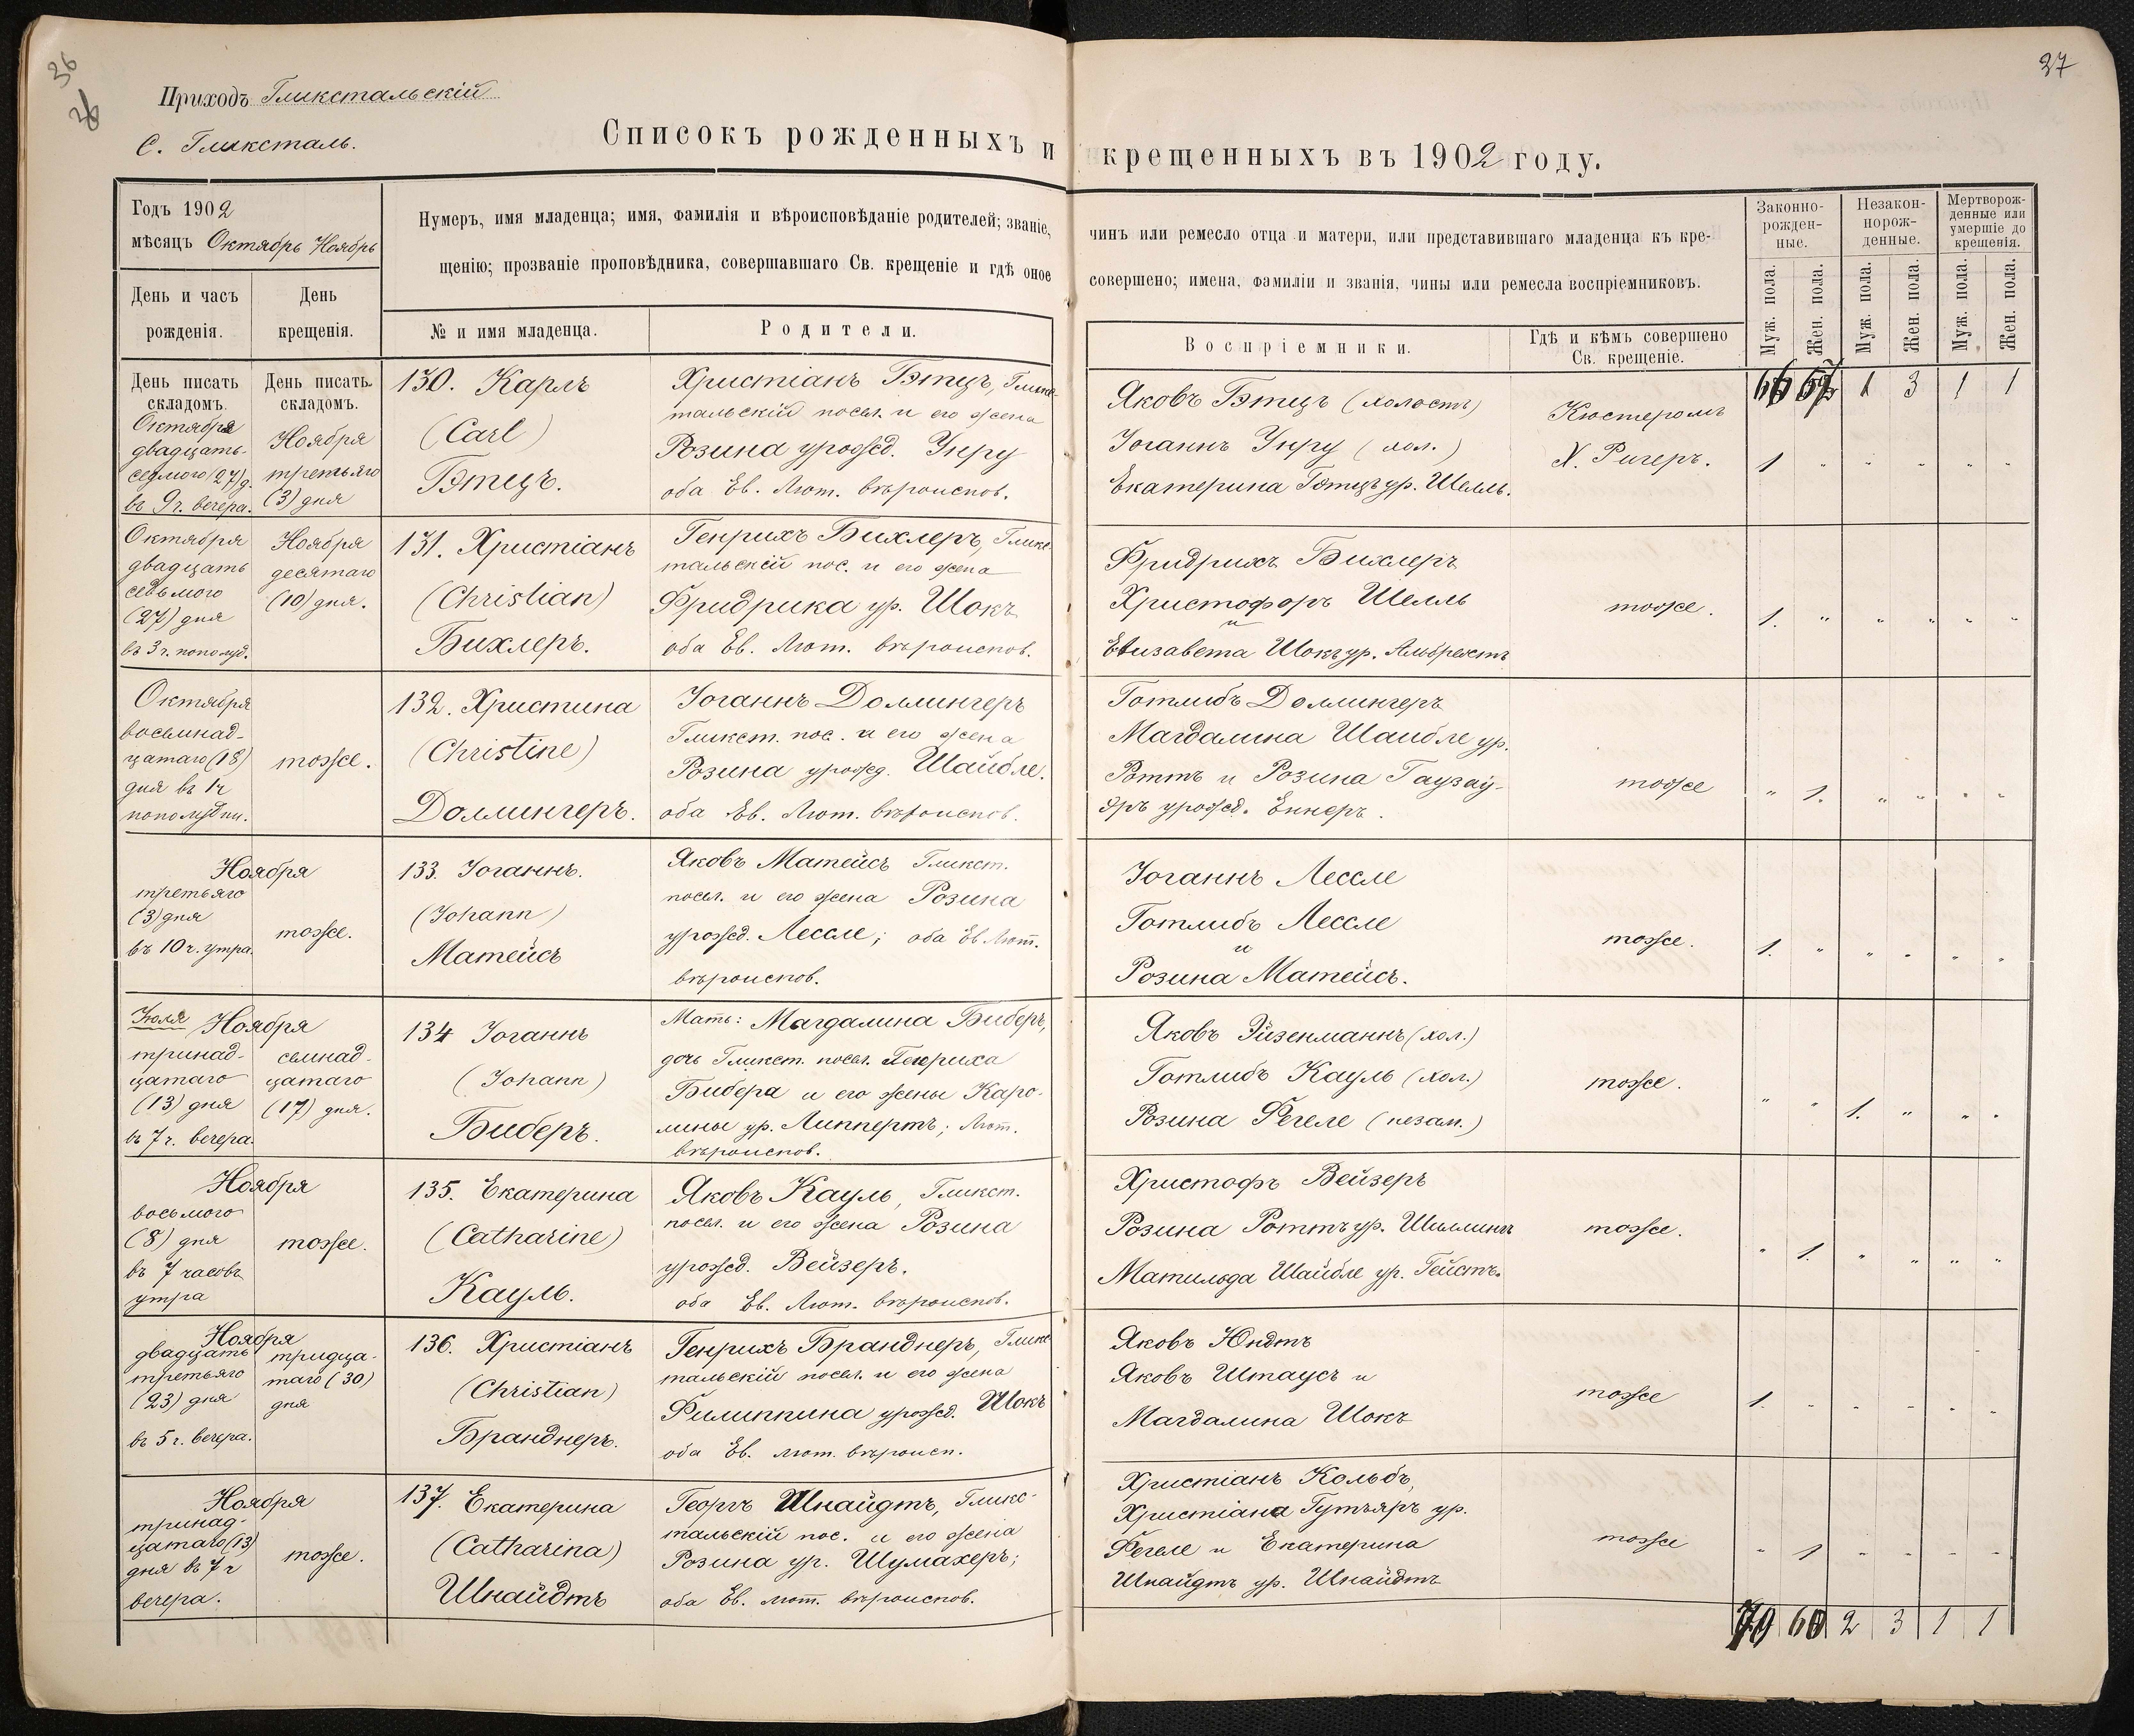 36
Приходъ Гликстальскій
С. Гликсталь.
Списокъ рожденныхъ и
Годъ 1902
мѣсяцъ Октябрь Ноябрь
Нумеръ, имя младенца; имя, фамилія и вѣроисповѣданіе родителей; званіе,
щенію; прозваніе проповѣдника, совершавшаго Св. крещеніе и гдѣ оное
День и часъ
рожденія.
День
крещенія.
№ и имя младенца.
Родители.
День писать
складомъ.
Октября
двадцать
седмого (27) д.
въ 9 ч. вечера.
День писать
складомъ.
Ноября
третьяго
(3) дня
130. Карлъ
(Carl)
Бэтцъ.
Христіанъ Бэтцъ, Гликс
тальскій посел. и его жена
Розина урожд. Унру
оба Ев. Лют. вѣроиспов.
Октября
двадцать
седьмого
(27) дня
въ 3 ч. пополуд.
Ноября
десятаго
(10) дня.
131. Христіанъ
(Christian)
Бихлеръ.
Генрихъ Бихлеръ, Гликс
тальскій пос. и его жена
Фридрика ур. Шокъ
оба Ев. Лют. вѣроиспов.
Октября
восьмнад-
цатаго (18)
дня въ 1 ч
пополудни.
тоже.
132. Христина
(Christine)
Доллингеръ.
Іоганнъ Доллингеръ
Гликст. пос. и его жена
Розина урожд. Шайбле.
оба Ев. Лют. вѣроиспов.
Ноября
третьяго
(3) дня
въ 10 ч. утра.
тоже.
133. Іоганнъ.
(Johann)
Матейсъ
Яковъ Матейсъ Гликст.
посел. и его жена Розина
урожд. Лессле; оба Ев Лют.
вѣроиспов.
Іюля Ноября
тринад-
цатаго
(13) дня
въ 7 ч. вечера.
семнад-
цатаго
(17) дня.
134 Іоганнъ
(Johann)
Биберъ.
Мать: Магдалина Биберъ,
дочь Гликст. посел. Генриха
Бибера и его жены Каро-
лины ур. Липпертъ; Лют.
вѣроиспов.
Ноября
восьмого
(8) дня
въ 7 часовъ
утра
тоже.
135. Екатерина
(Catharine)
Кауль.
Яковъ Кауль, Гликст.
посел. и его жена Розина
урожд. Вейзеръ.
оба Ев. Лют. вѣроиспов.
Ноября
двадцать
третьяго
(23) дня
въ 5 ч. вечера.
тридца-
таго (30)
дня
136. Христіанъ
(Christian)
Бранднеръ.
Генрихъ Бранднеръ, Гликс
тальскій посел. и его жена
Филиппина урожд. Шокъ
оба Ев. лют. вѣроисп.
Ноября
тринад-
цатаго (13)
дня въ 7 ч
вечера.
тоже.
137. Екатерина
(Catharina)
Шнайдтъ
Георгъ Шнайдтъ, Гликс-
тальскій пос. и его жена
Розина ур. Шумахеръ;
оба Ев. лют. вѣроиспов.
37
крещенныхъ въ 1902 году.
чинъ или ремесло отца и матери, или представившаго младенца къ кре-
совершено; имена, фамиліи и званія, чины или ремесла воспріемниковъ.
Воспріемники.
Гдѣ и кѣмъ совершено
Св. крещеніе.
Законно-
рожден-
ные.
Незакон-
норож-
денные.
Мертворож-
денные или
умершіе до
крещенія.
Муж. пола.
Жен. пола.
Муж. пола.
Жен. пола.
Муж. пола.
Жен. пола.
1 3 1 1
Яковъ Бэтцъ (холостъ)
Іоганнъ Унру (хол.)
Екатерина Бэтцъ ур. Шелль.
Кюстеромъ
Х. Ригеръ.
1 " " " " "
Фридрихъ Бихлеръ
Христофоръ Шелль
и
Елизавета Шокъ ур. Альбрехтъ
тоже.
1. " " " " "
Готлибъ Доллингеръ
Магдалина Шайбле ур.
Роттъ и Розина Гаузау-
эръ урожд. Еннеръ.
тоже
" 1. " " " "
Іоганнъ Лессле
Готлибъ Лессле
и
Розина Матейсъ.
тоже.
1. " " " " "
Яковъ Эйзенманнъ (хол.)
Готлибъ Кауль (хол.)
Розина Фегеле (незам.)
тоже.
" " 1. " " "
Христофъ Вейзеръ
Розина Роттъ ур. Шиллингъ
Матильда Шайбле ур. Гейстъ.
тоже.
" 1. " " " "
Яковъ Юндтъ
Яковъ Штаусъ и
Магдалина Шокъ
тоже
1. " " " " "
Христіанъ Кольбъ,
Христіана Гутъяръ ур.
Фегеле и Екатерина
Шнайдтъ ур. Шнайдтъ
тоже
" 1 " " " "
60 2 3 1 1